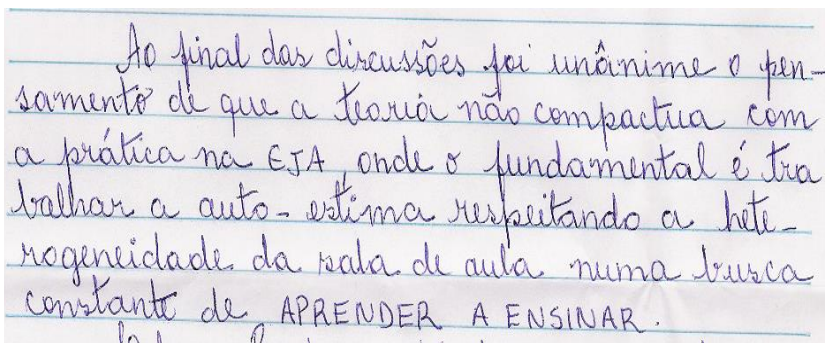 Ao final das discussões foi unânime o pen-
samento de que a teoria não compactua com
a prática na EJA, onde o fundamental é tra
balhar a auto-estima respeitando a hete-
rogeneidade da sala de aula numa busca
constante de APRENDER A ENSINAR.